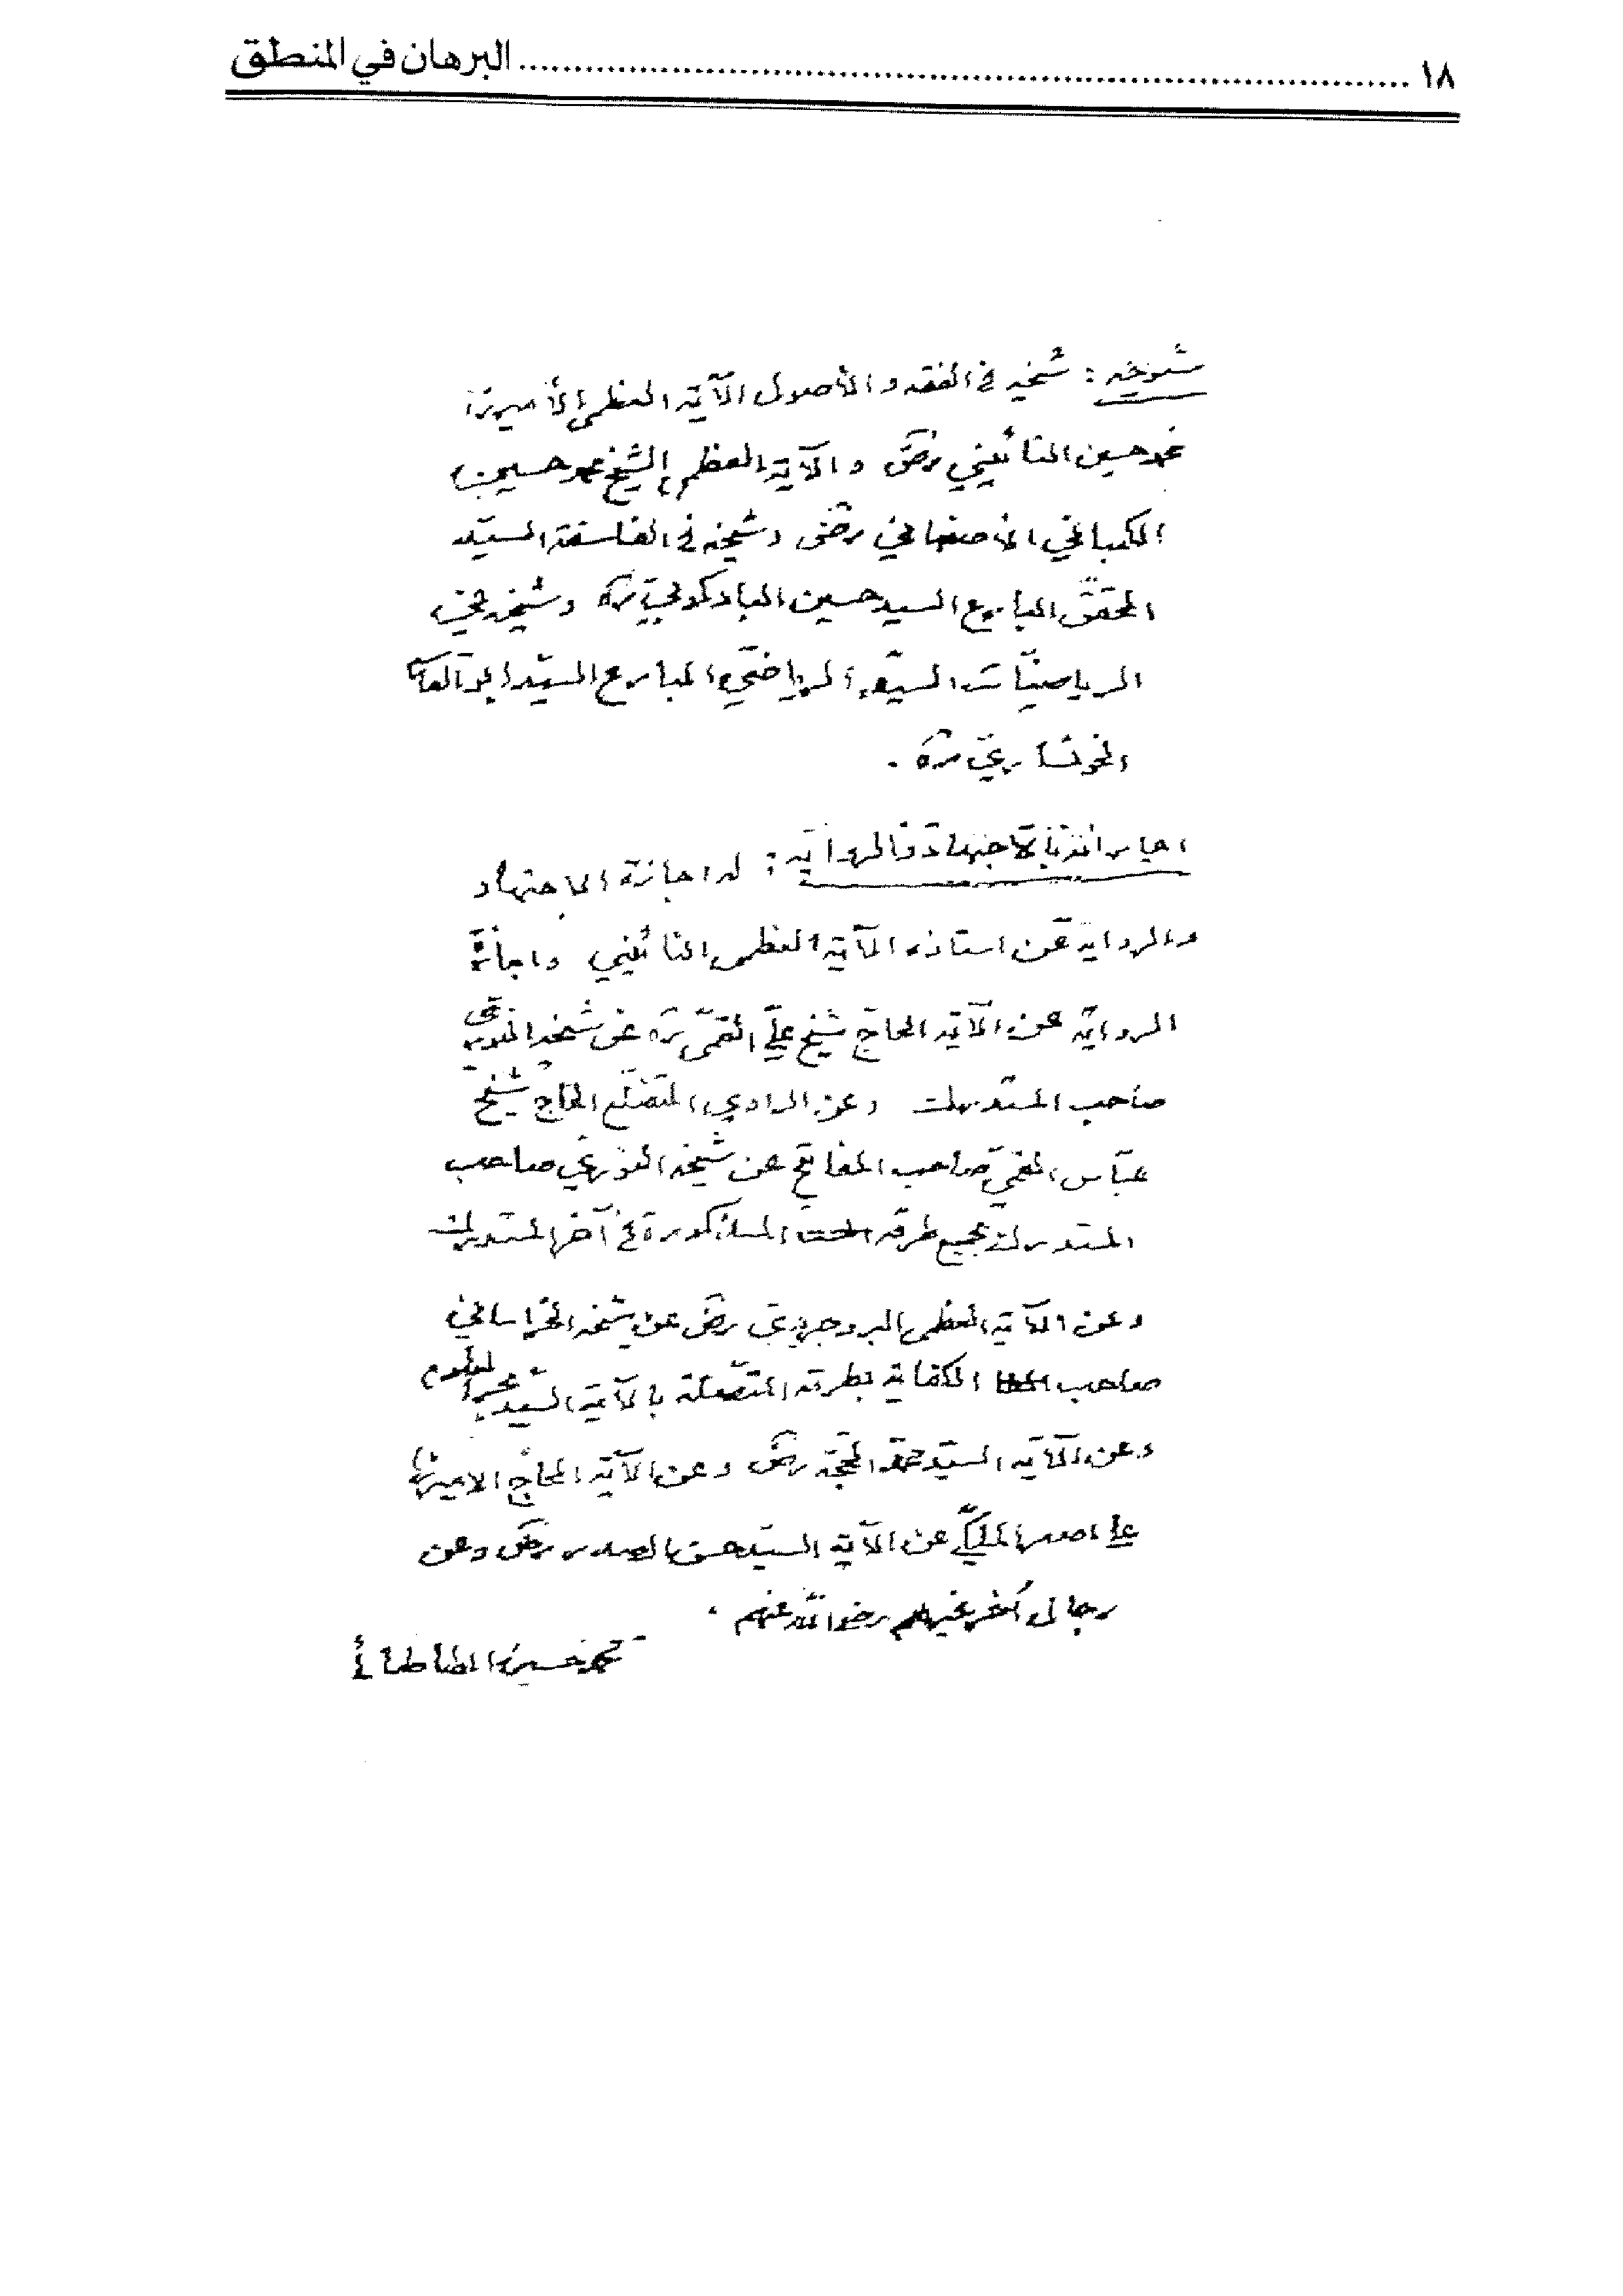 ١٨ ........ البرهان في المنطق
شيوخه : شيخه في الفقه و الأصول الآية العظمى الأميرزا
محمد حسين النائيني رض و الآية العظمى الشيخ محمد حسين
الكمباني الأصفهاني رض و شيخه في الفلسفة السيد
المحقق البارع السيد حسين البادكوبي ره و شيخه في
الرياضيّات السيّد الرياضي البارع السيّد ابوالقاسم
الخونساري ره .
اجازاته بالاجتهاد و الرواية : له اجازة الاجتهاد
و الرواية عن استاذه الآية العظمى النائيني و اجازة
الرواية عن الآية الحاج شيخ علي القمي ره عن شيخه النوري
صاحب المستدرك و عن الراوي المتضلع الحاج شيخ
عبّاس القمي صاحب المفاتيح عن شيخه النوري صاحب
المستدرك بجميع طرقه المذكورة في آخر المستدرك
و عن الآية العظمى البروجردي رض عن شيخه الخراساني
صاحب الكفاية بطرقه المتصلة بالآية السيد بحر العلوم
و عن الآية السيّد محمد الحجة رض و عن الآية الحاج الاميرزا
علي اصغر الملكي عن الآية السيّد حسن الصدر رض و عن
رجال أخر غيرهم رضوان الله عنهم .
محمد حسين الطباطبائي